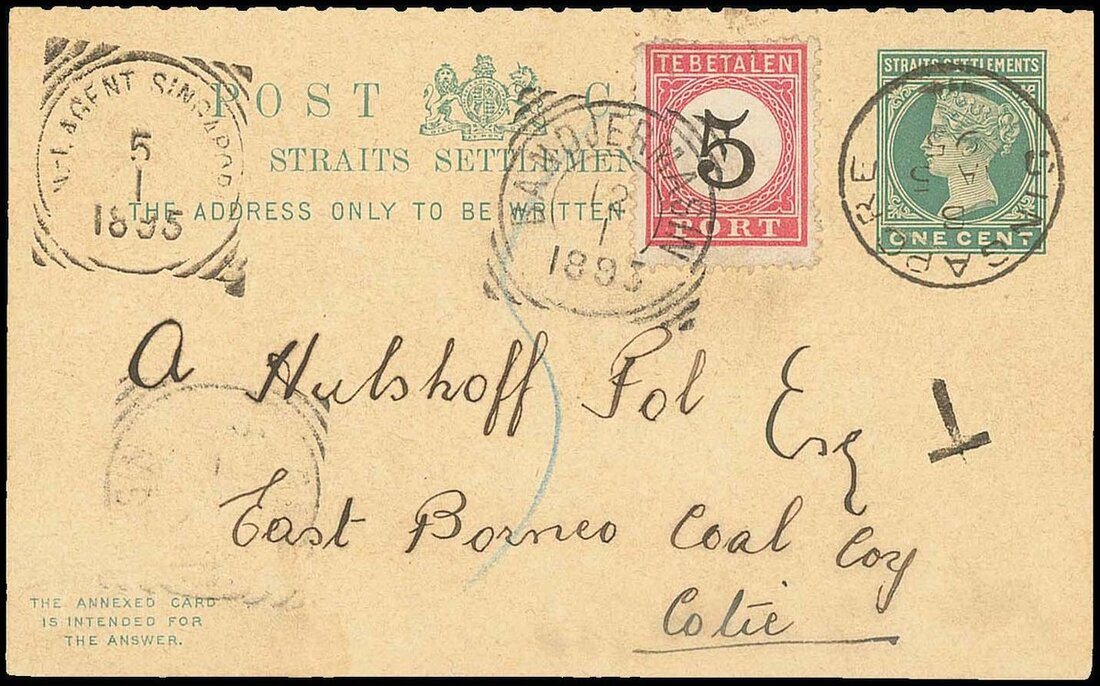 N.I. AGENT SINGAPORE
5
1
1893
POST CA
STRAITS SETTLEMEN
THE ADDRESS ONLY TO BE WRITTEN
BANDJERMASIN
12
1
1893
TE BETALEN
5
PORT
STRAITS SETTLEMENTS
ONE CENT
SINGAPORE
A Hulshoff Pol Esq
T
East Borneo Coal Coy
Cotie
THE ANNEXED CARD
IS INTENDED FOR
THE ANSWER.